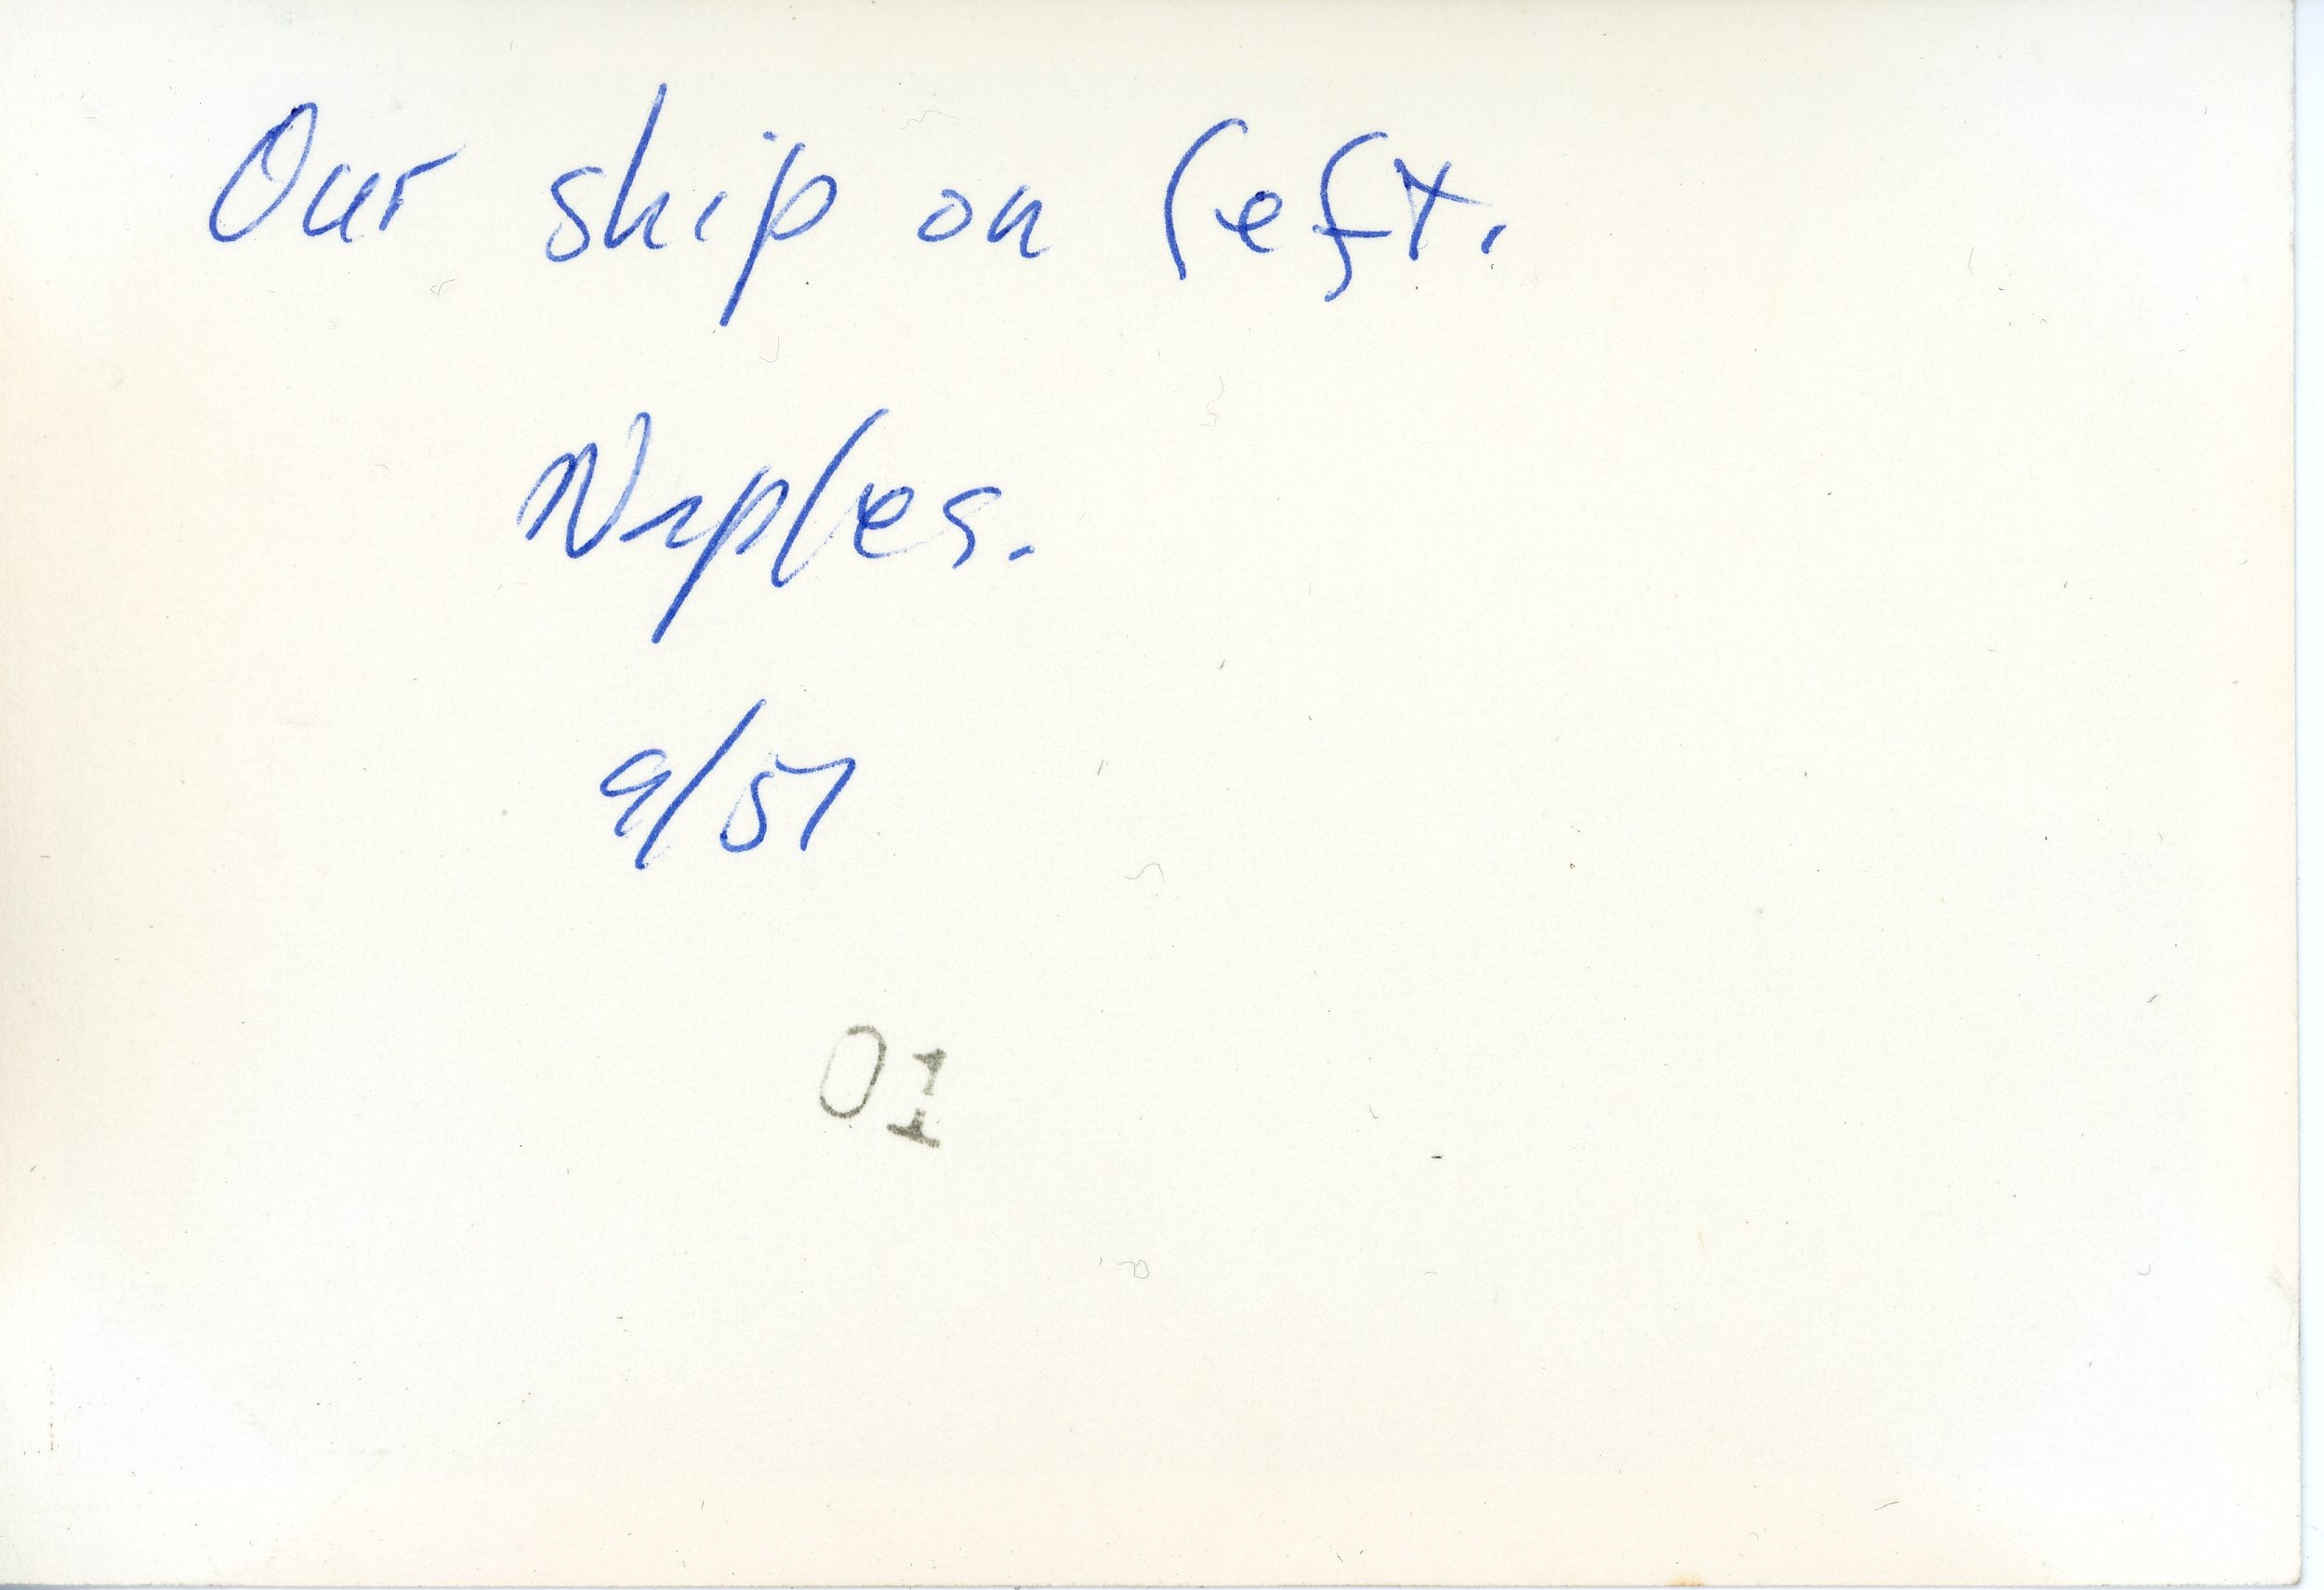 Our ship on left.
Naples.
9/51
01